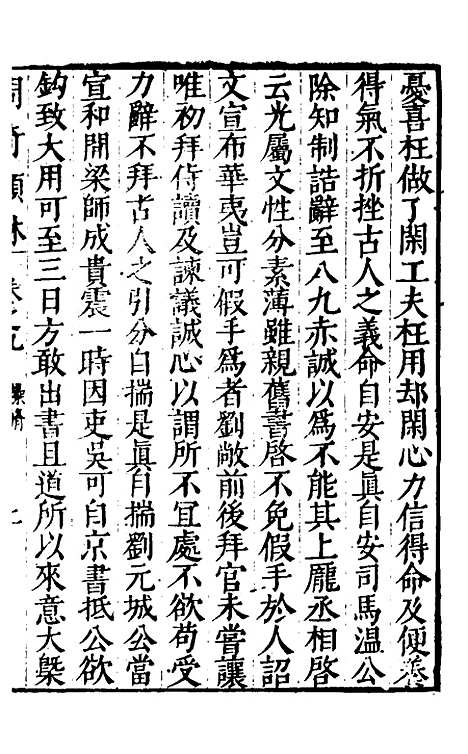 憂喜枉做了閑工夫枉用却閑心力信得命及便養
得氣不折挫古人之義命自安是眞自安司馬溫公
除知制誥辭至八九赤誠以爲不能其上龎丞相啓
云光屬文性分素薄雖親舊書啓不免假手於人詔
文宣布華夷豈可假手爲者劉敞前後拜官未嘗讓
唯初拜侍讀及諫議誠心以謂所不宜處不欲苟受
力辭不拜古人之引分自揣是眞自揣劉元城公當
宣和開梁師成貴震一時因吏吳可自京書抵公欲
鈎致大用可至三日方敢出書且道所以來意大槩
卷之九